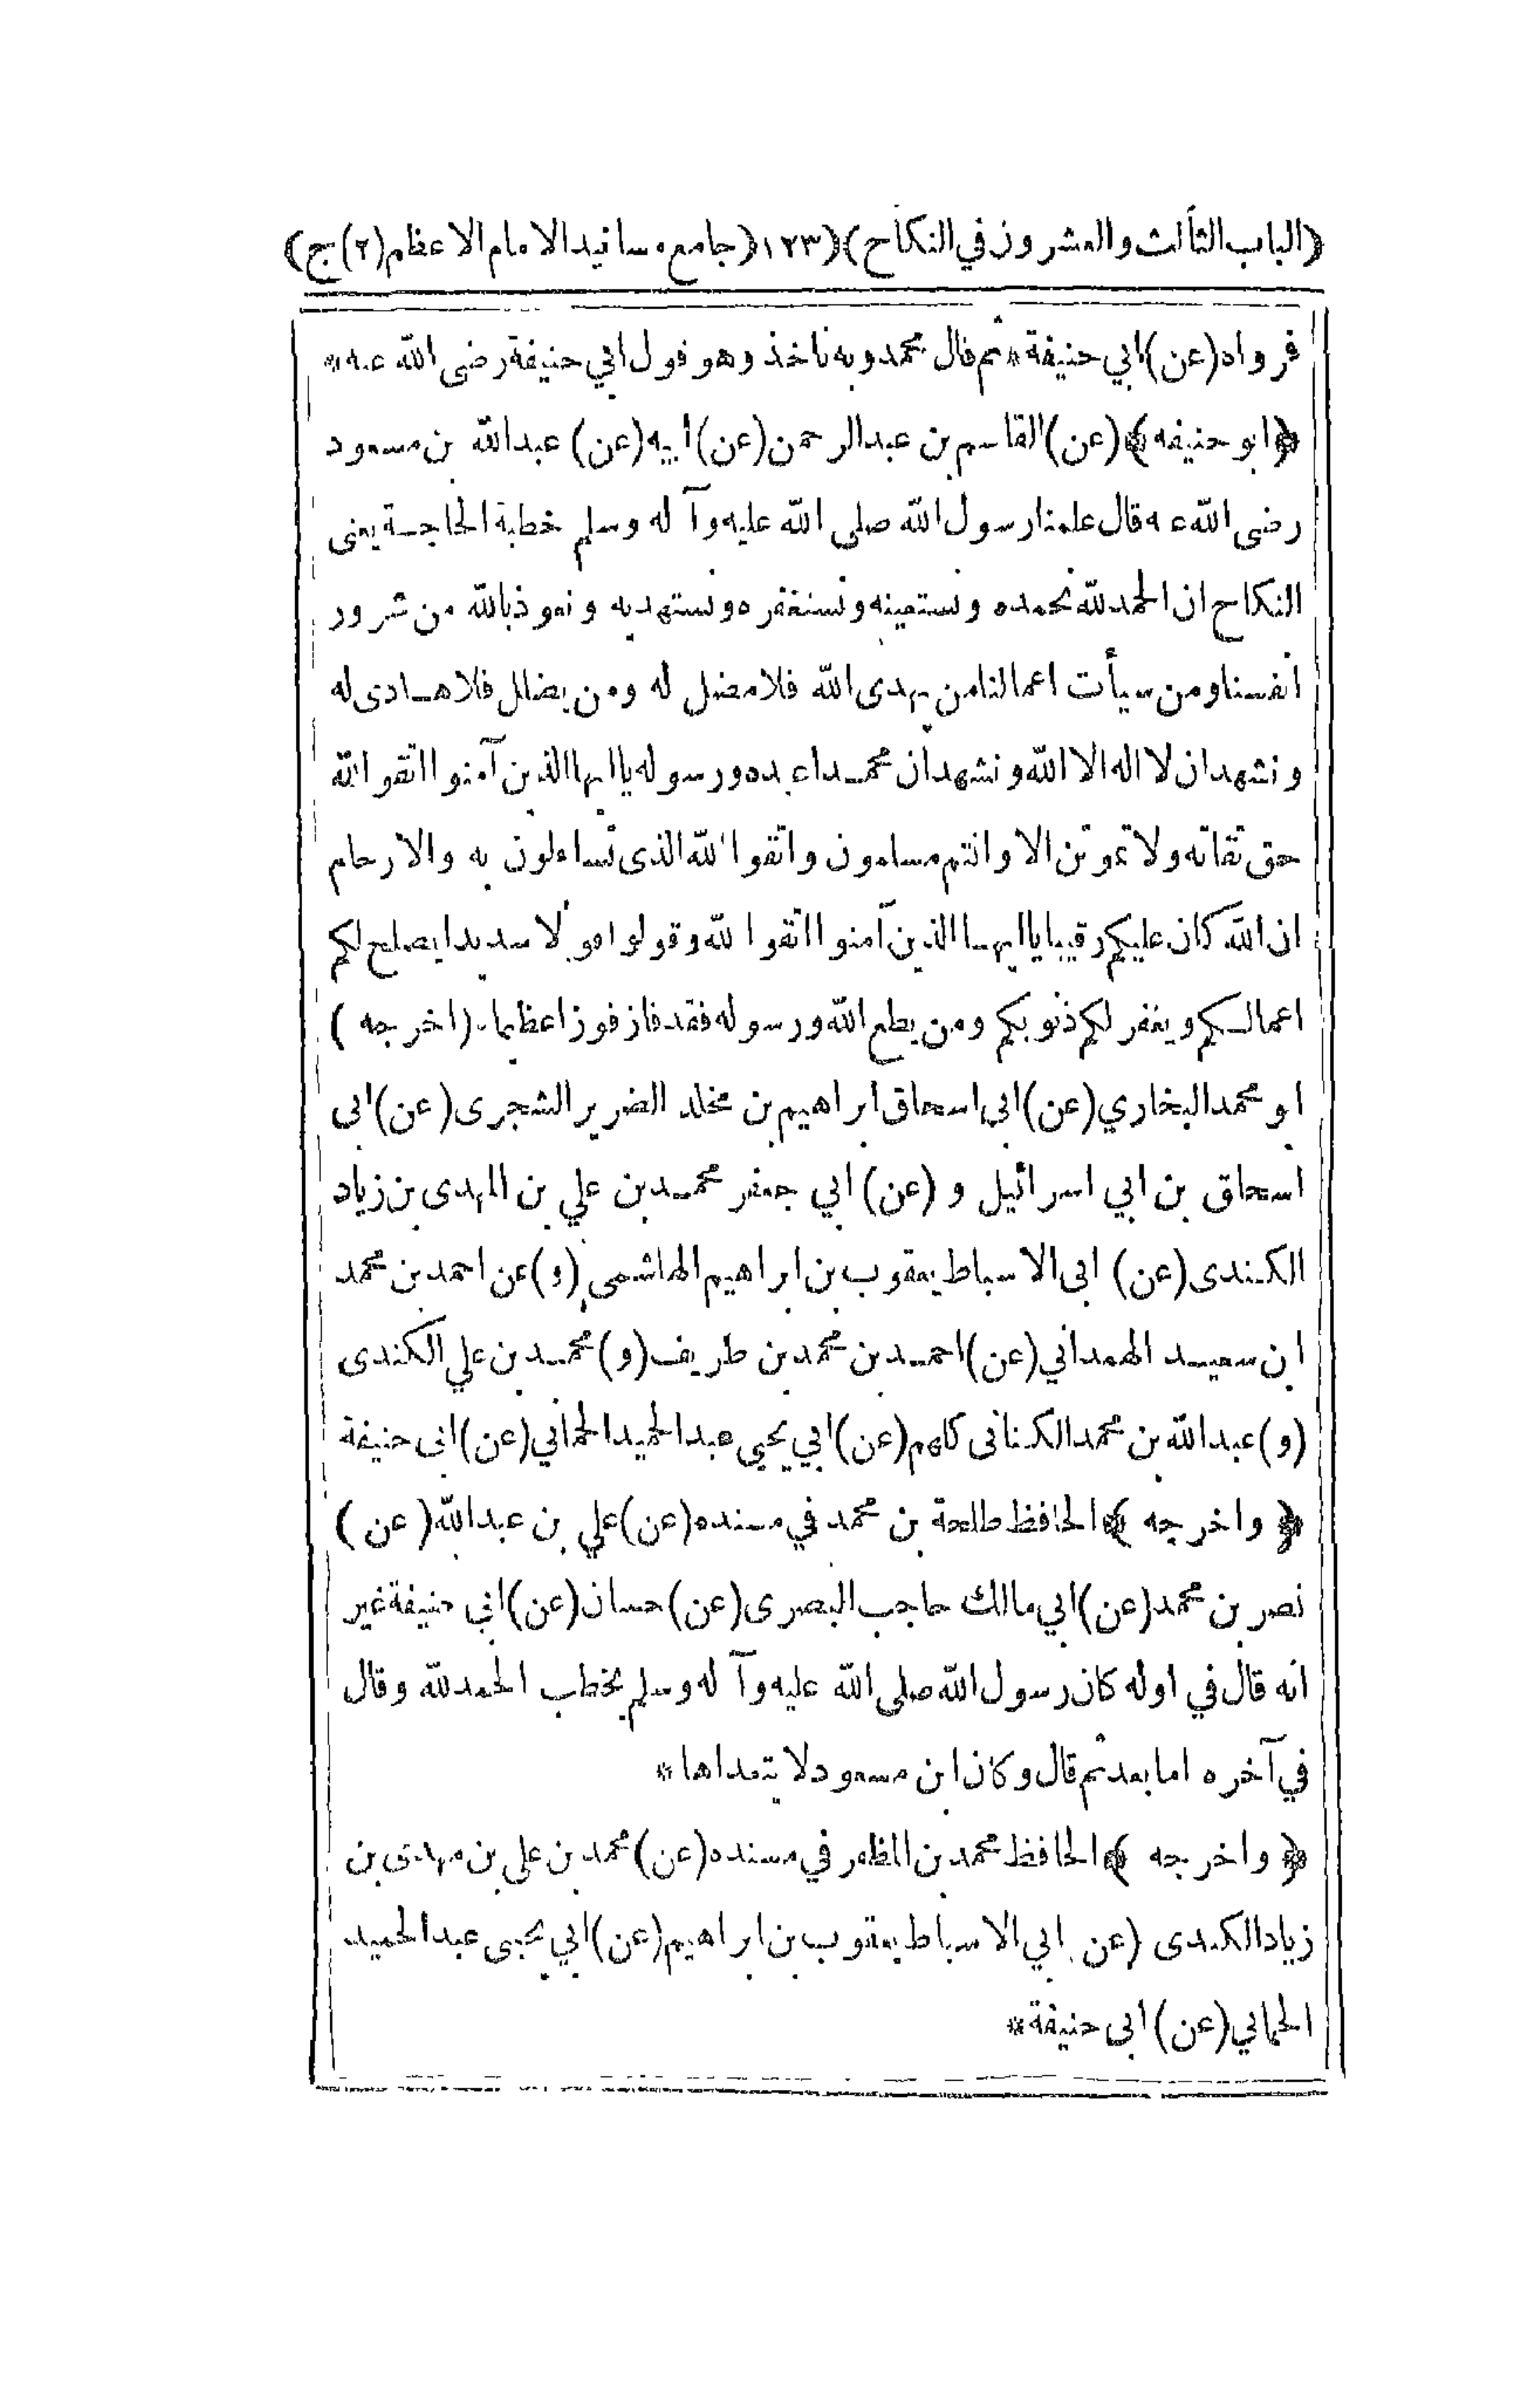 ﴿الباب الثالث والعشرون في النكاح﴾ ﴿١٢٣﴾ ﴿جامع مسانيد الامام الاعظم (٢) ج﴾
فرواه (عن) ابي حنيفة * ثم قال محمد وبه ناخذ وهو قول ابي حنيفة رضى الله عنه *
﴿ابو حنيفه﴾ (عن) القاسم بن عبدالرحمن (عن) أبيه (عن) عبدالله بن مسعود
رضى الله عنه قال علمنا رسول الله صلى الله عليه وآله وسلم خطبة الحاجة يعنى
النكاح ان الحمد لله نحمده ونستعينه ونستغفره ونستهديه ونعوذ بالله من شرور
انفسنا ومن سيأت اعمالنا من يهدى الله فلا مضل له ومن يضلل فلا هادى له
ونشهد ان لا اله الا الله ونشهد ان محمدا عبده ورسوله يا ايها الذين آمنوا اتقوا الله
حق تقاته ولا تموتن الا وانتم مسلمون واتقوا الله الذى تساءلون به والارحام
ان الله كان عليكم رقيبا يا ايها الذين آمنوا اتقوا الله وقولوا قولا سديدا يصلح لكم
اعمالكم ويغفر لكم ذنوبكم ومن يطع الله ورسوله فقد فاز فوزا عظيما. (اخرجه)
ابو محمد البخاري (عن) ابى اسحاق ابراهيم بن مخلد الضرير الشجرى (عن) ابى
اسحاق بن ابي اسرائيل و (عن) ابي جعفر محمد بن علي بن المهدى بن زياد
الكندى (عن) ابى الاسباط يعقوب بن ابراهيم الهاشمى (و) عن احمد بن محمد
ابن سعيد الهمداني (عن) احمد بن محمد بن طريف (و) محمد بن علي الكندى
(و) عبدالله بن محمد الكنانى كلهم (عن) ابي يحيى عبدالحميد الحماني (عن) ابى حنيفة
﴿واخرجه﴾ الحافظ طلحة بن محمد في مسنده (عن) علي بن عبدالله (عن)
نصر بن محمد (عن) ابي مالك حاجب البصرى (عن) حسان (عن) ابي حنيفة غير
انه قال في اوله كان رسول الله صلى الله عليه وآله وسلم يخطب الحمد لله وقال
في آخره اما بعد ثم قال وكان ابن مسعود لا يتعداها *
﴿واخرجه﴾ الحافظ محمد بن المظفر في مسنده (عن) محمد بن على بن مهدى بن
زياد الكندى (عن ابي الاسباط يعقوب بن ابراهيم (عن) ابي يحيى عبدالحميد
الحماني (عن) ابى حنيفة *